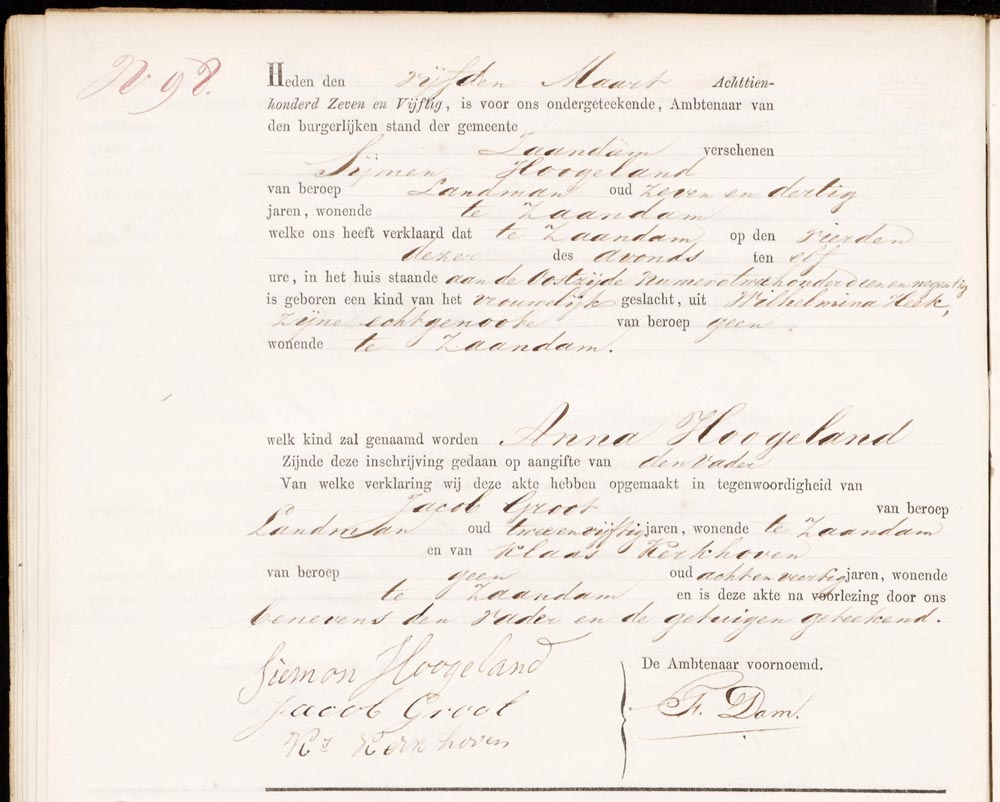 No 98.
Heden den vijfden Maart Achttien-
honderd Zeven en Vijftig, is voor ons ondergeteekende, Ambtenaar van
den burgerlijken stand der gemeente
Zaandam verschenen
Sijmen Hoogeland
van beroep Landman oud zeven en dertig
jaren, wonende te Zaandam
welke ons heeft verklaard dat te Zaandam, op den vierden
dezer des avonds ten elf
ure, in het huis staande aan de Oostzijde Numero tweehonderd een en negentig
is geboren een kind van het vrouwelijk geslacht, uit Wilhelmina Heek,
zijne echtgenoote van beroep geen
wonende te Zaandam.
welk kind zal genaamd worden Anna Hoogeland
Zijnde deze inschrijving gedaan op aangifte van den vader
Van welke verklaring wij deze akte hebben opgemaakt in tegenwoordigheid van
Jacob Groot van beroep
Landman oud twee en vijftig jaren, wonende te Zaandam
en van Klaas Kerkhoven
van beroep geen oud acht en veertig jaren, wonende
te Zaandam en is deze akte na voorlezing door ons
benevens den vader en de getuigen geteekend.
Siemon Hoogeland
Jacob Groot
Ks Kerkhoven
De Ambtenaar voornoemd.
F. Dam.